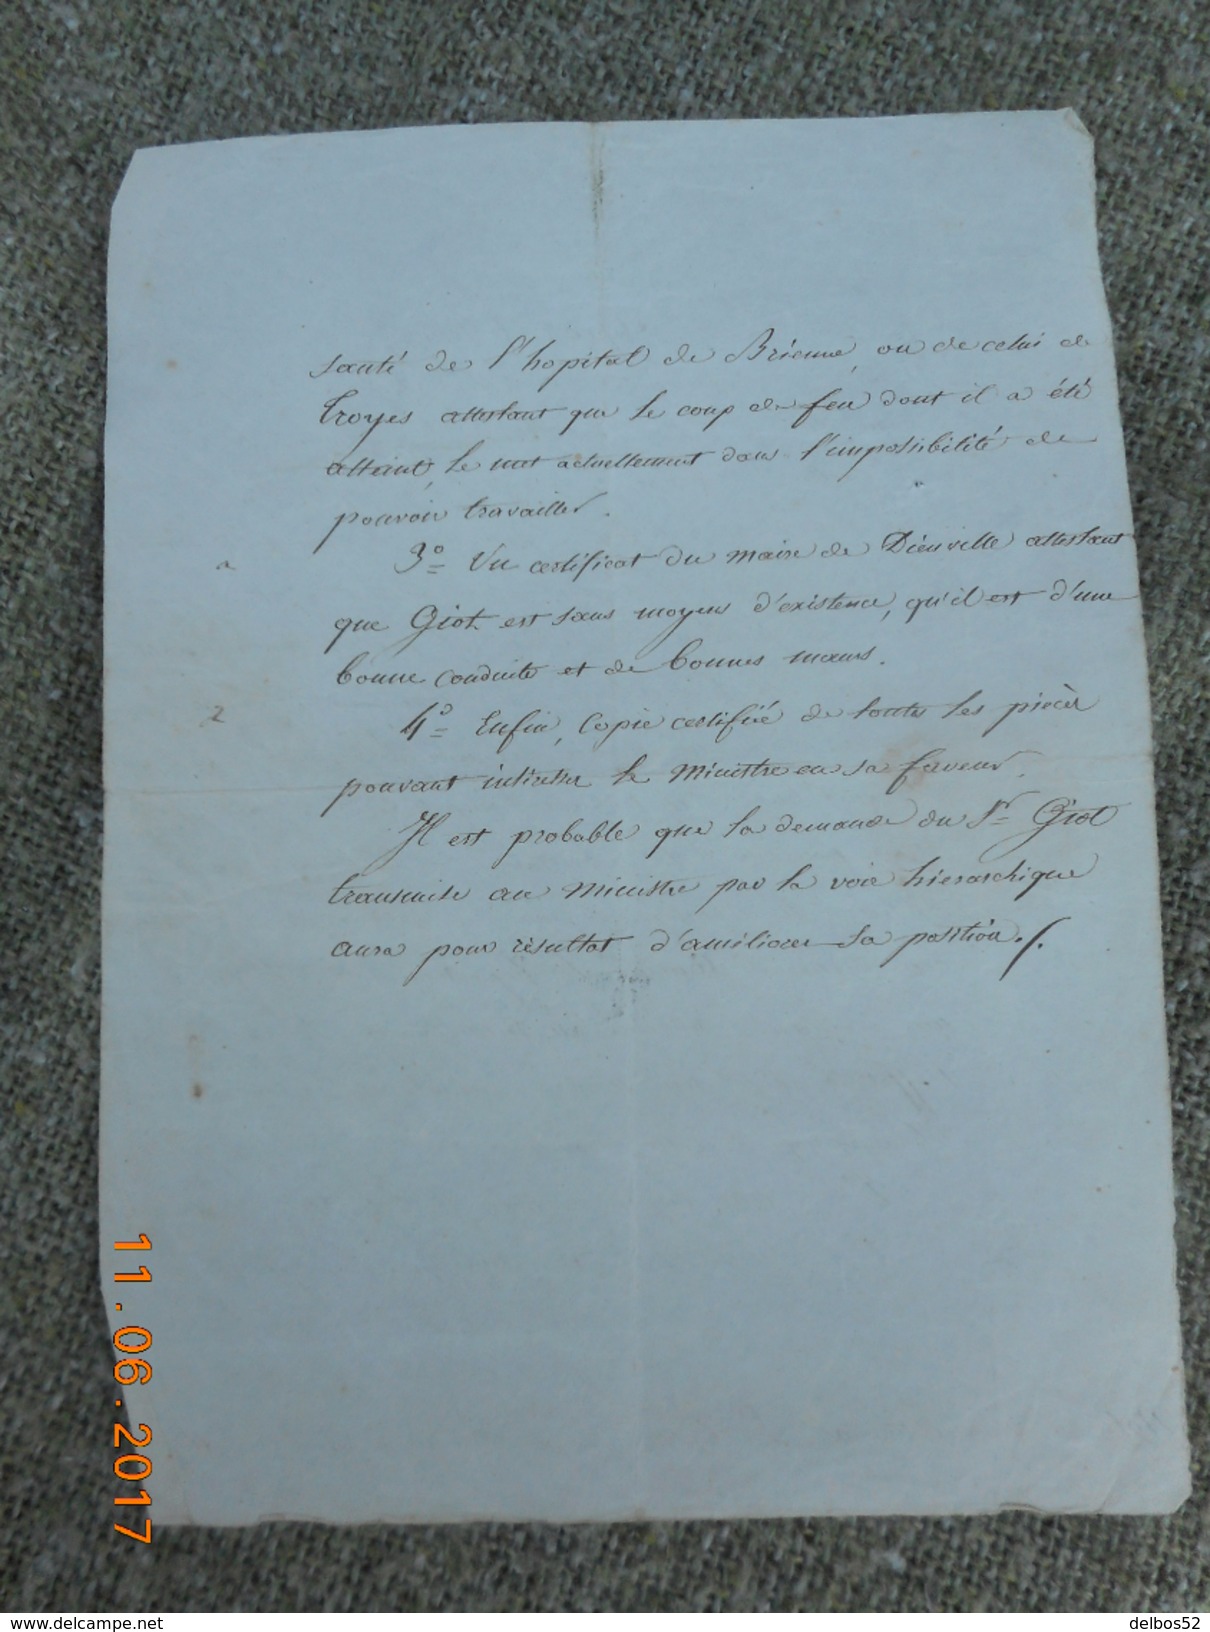 santé de l'hopital de Brienne, ou de celui de
Troyes attestant que le coup de feu dont il a été
atteint, le met actuellement dans l'impossibilité de
pouvoir travailler.
3º Un certificat du maire de Dienville attestant
que Giot est sans moyens d'existence, qu'il est d'une
bonne conduite et de bonnes mœurs.
2
4º Enfin, Copie certifiée de toutes les pièces
pouvant intéresser le Ministre en sa faveur.
Il est probable que la demande du Sr Giot
transmise au Ministre par la voie hierarchique
aura pour résultat d'améliorer sa position./.
11.06.2017
www.delcampe.net
delbos52